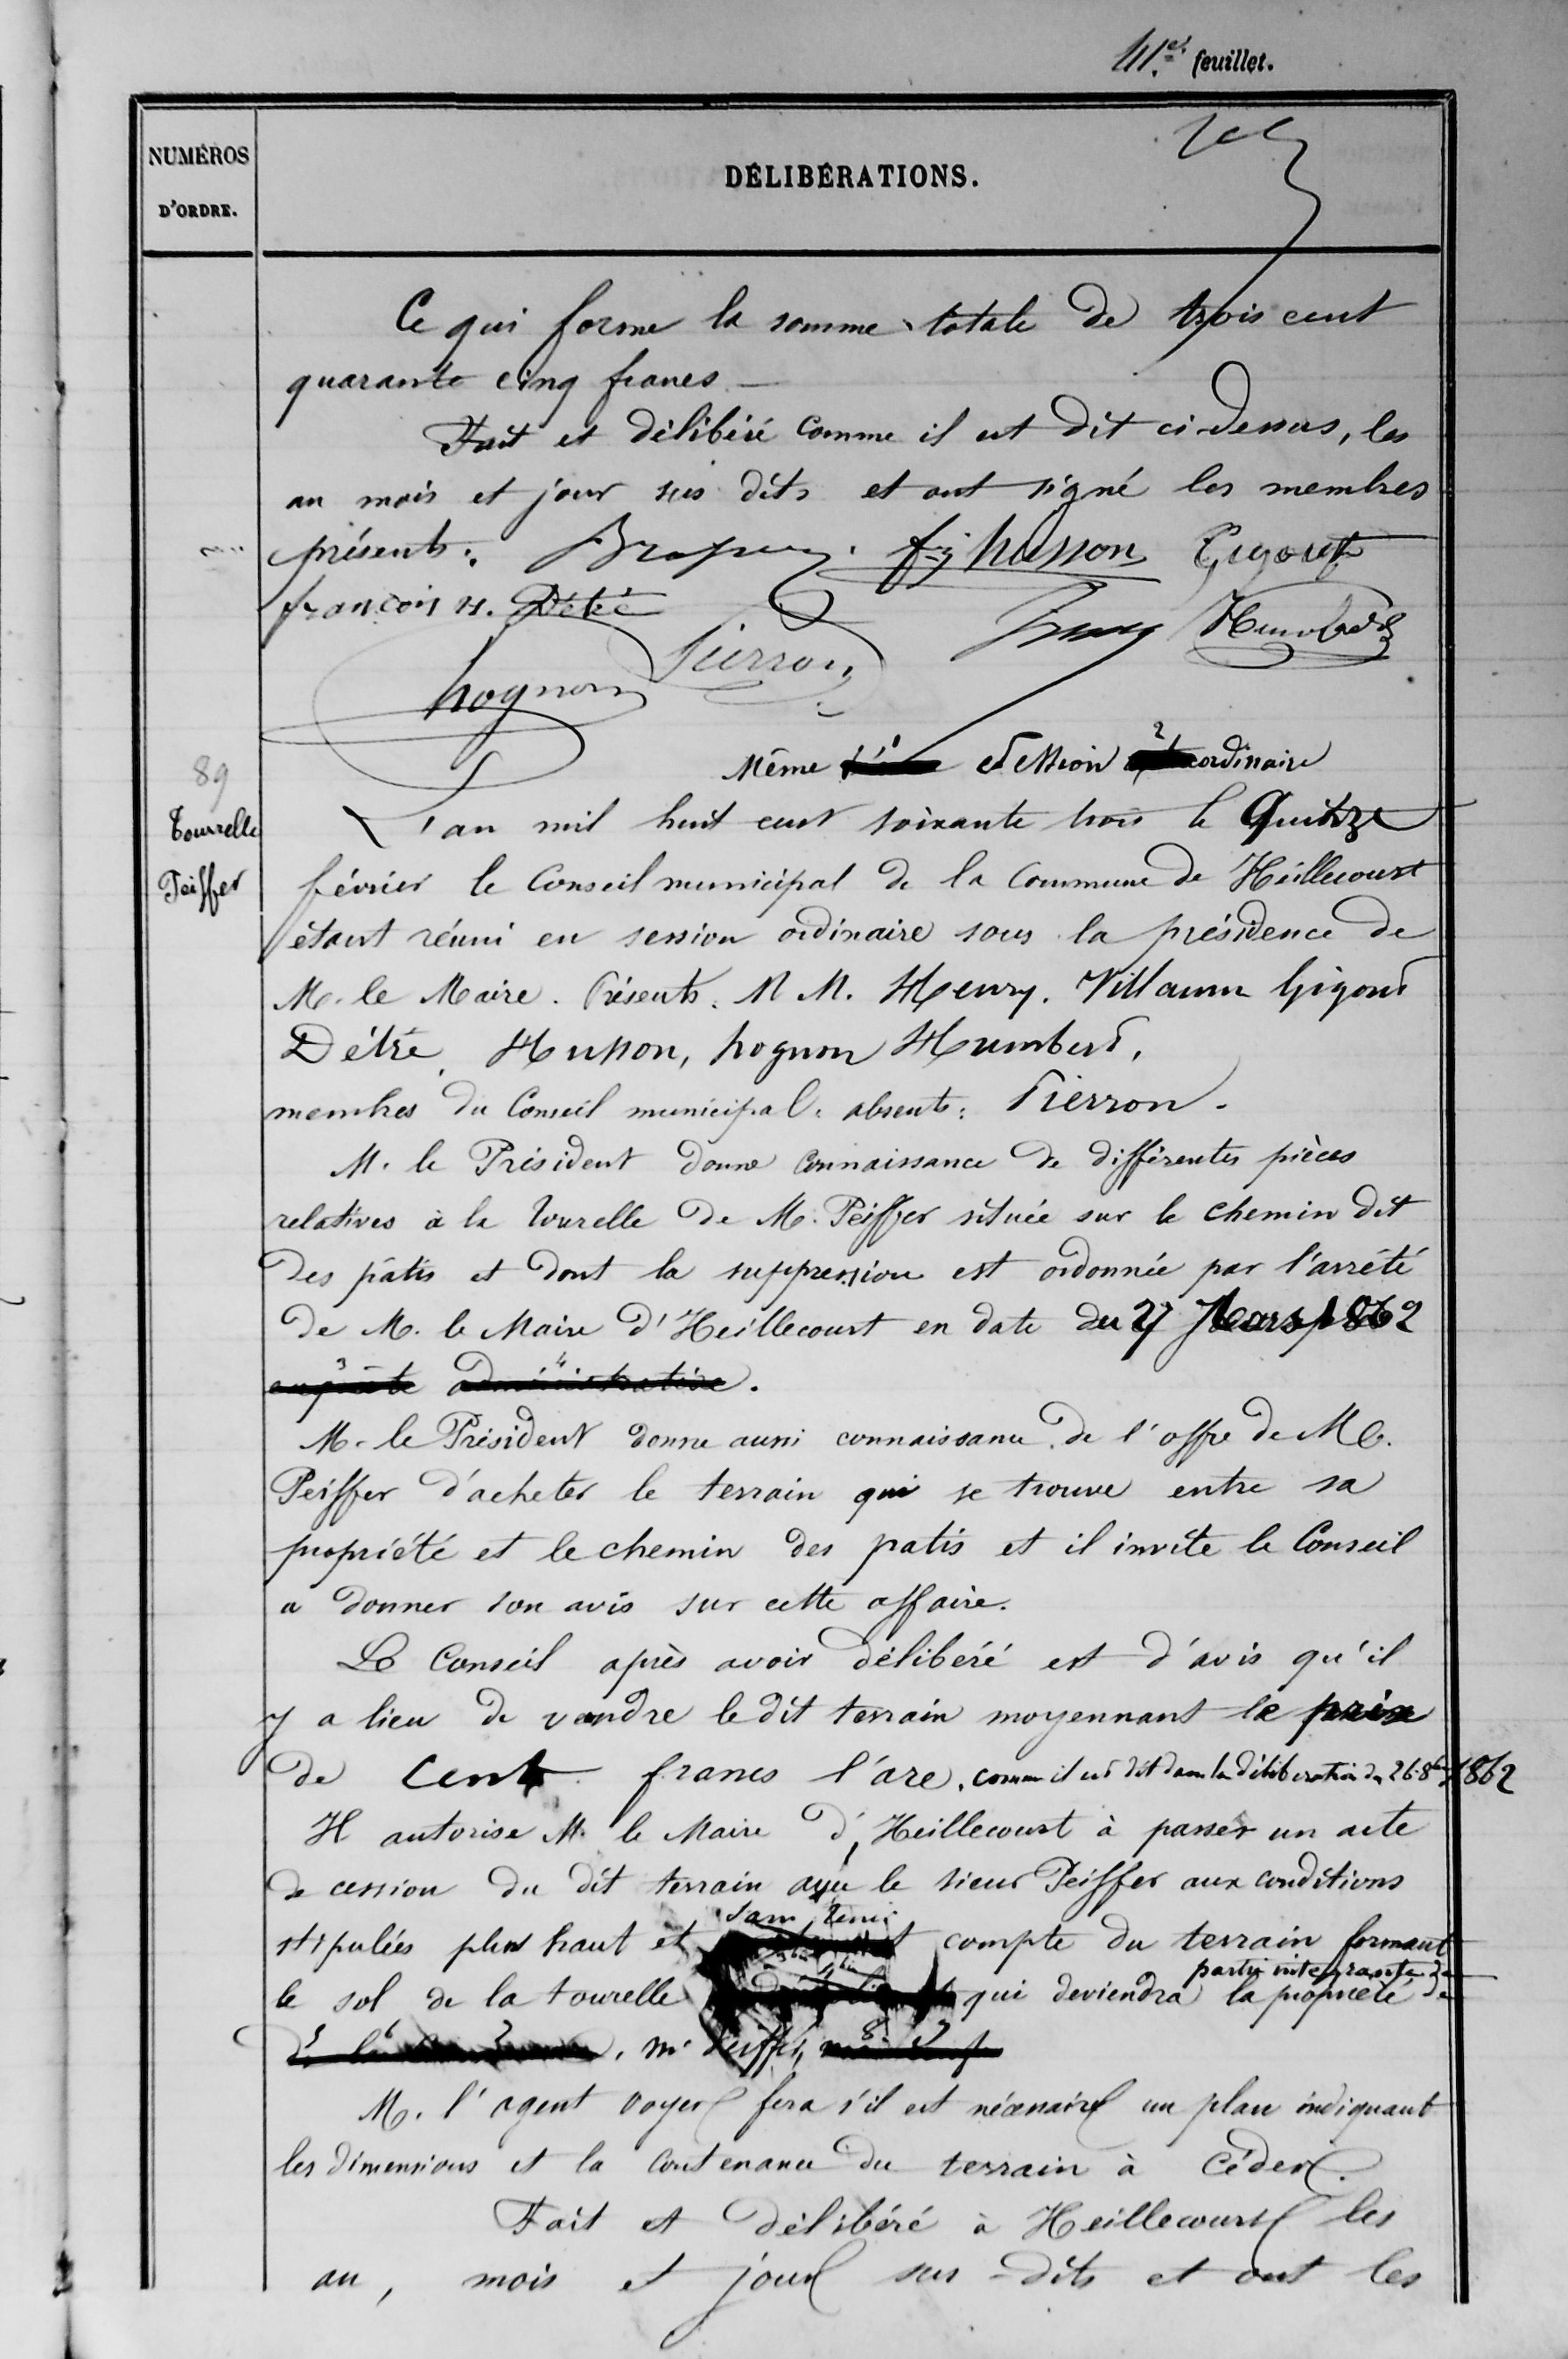 41.e feuillet.
NUMÉROS
D'ORDRE.
DÉLIBÉRATIONS.
Ce qui forme la somme totale de trois cent
quarante cinq francs
Fait et délibéré comme il est dit ci-dessus, les
an mois et jour sus dits et ont signé les membres
présents. husson Gigout
françois n. Détré Humbert
Pierron
hognon
89
Tourrelle
Peiffer
Même session ordinaire
L'an mil huit cent soixante trois le Quinze
février le Conseil municipal de la Commune de Heillecourt
étant réuni en session ordinaire sous la présidence de
M. le Maire. Présents. M M. Henry. Villaume Gigout
Détré, Husson, hognon Humbert,
membres du Conseil municipal. absents: Pierron.
M. le Président donne connaissance de différentes pièces
relatives à la tourelle de M. Peiffer située sur le chemin dit
des pâtis et dont la suppression est ordonnée par l'arrêté
de M. le Maire d'Heillecourt en date du 27 Mars 1862
enquête administrative.
M. le Président donne aussi connaissance de l'offre de M.
Peiffer d'acheter le terrain qui se trouve entre sa
propriété et le chemin des patis et il invite le Conseil
a donner son avis sur cette affaire.
Le Conseil après avoir délibéré est d'avis qu'il
y a lieu de vendre le dit terrain moyennant le prix
de Cent francs l'are. comme il est dit dans la délibération du 26 8bre 1862
Il autorise M. le Maire d'Heillecourt à passer un acte
de cession du dit terrain avec le sieur Peiffer aux conditions
stipulées plus haut et sans tenir compte du terrain formant
le sol de la tourelle qui deviendra partie intégrante de la propriété de
Mr Peiffer,
M. l'agent voyer fera s'il est nécessaire un plan indiquant
les dimensions et la contenance du terrain à céder.
Fait et délibéré à Heillecourt les
an, mois et jour sus-dits et ont les